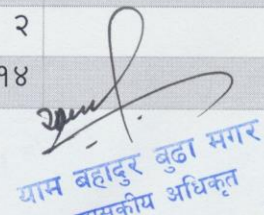 २
१४
याम बहादुर बुढा मगर
अधिकृत